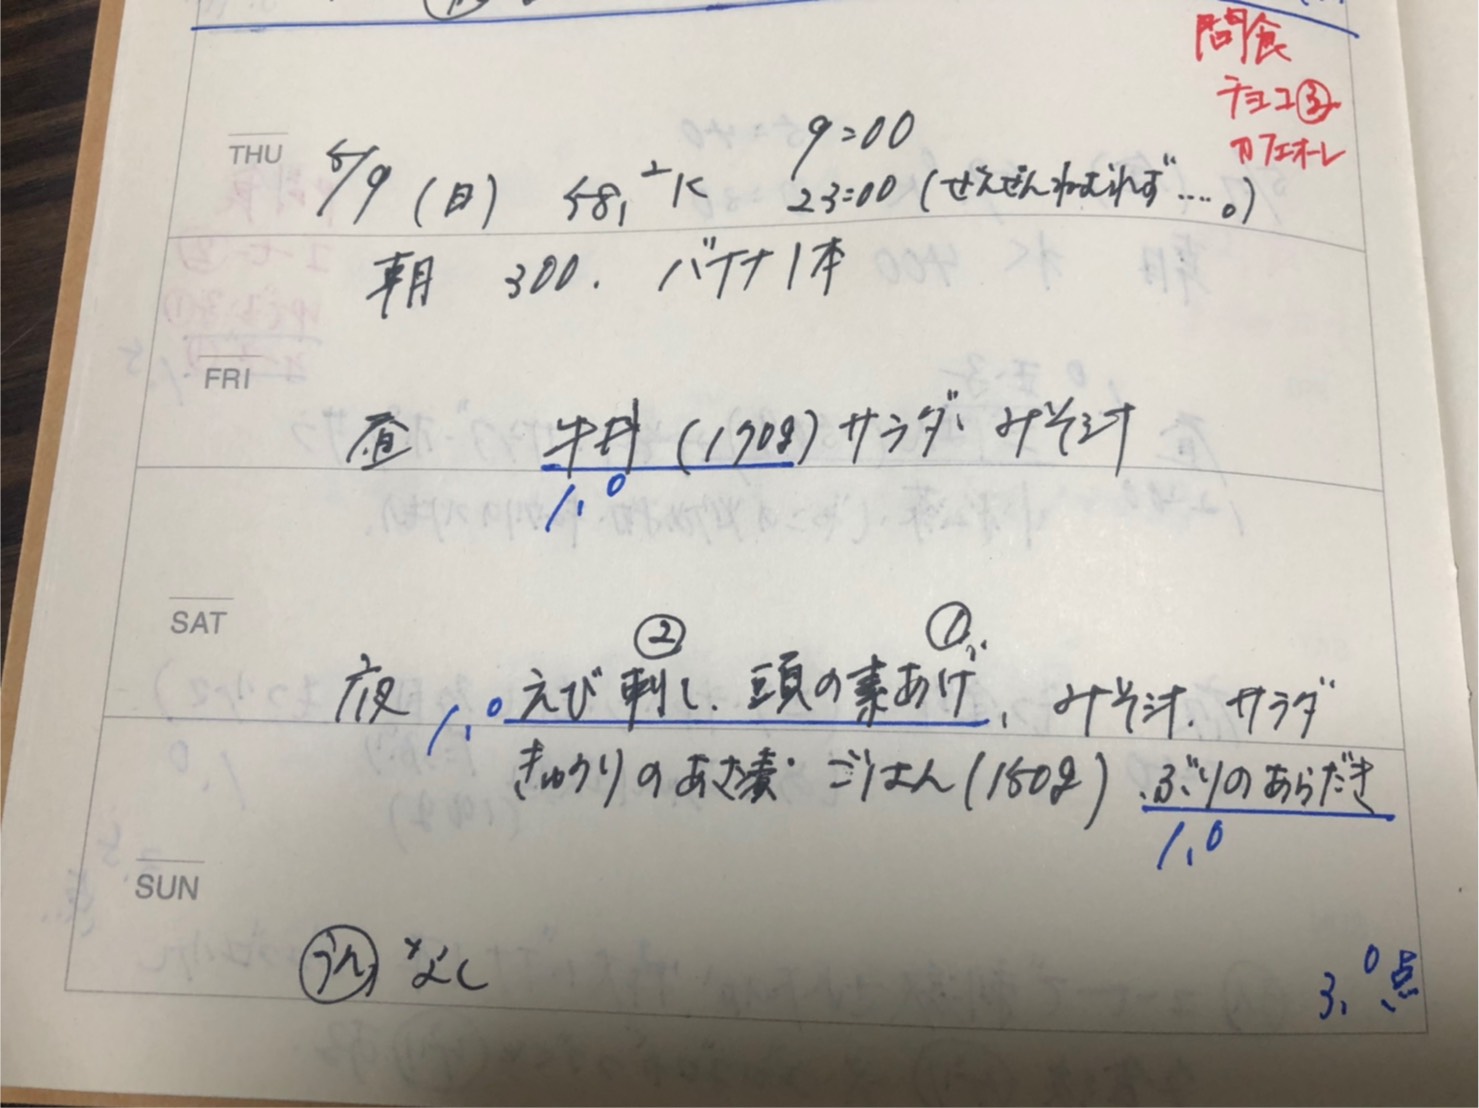 間食
チョコ③
カフェオーレ
THU
9:00
5/9 (日) 58,2K 23:00 (ぜんぜんねむれず……。)
朝 300. バナナ1本
FRI
昼 牛丼 (170g) サラダ、みそ汁
1,0
SAT
② ①
夜 1,0 えび刺し、頭の素あげ、みそ汁、サラダ
きゅうりのあさ漬 ごはん(150g) ぶりのあらだき
1,0
SUN
うん なし
3,0点